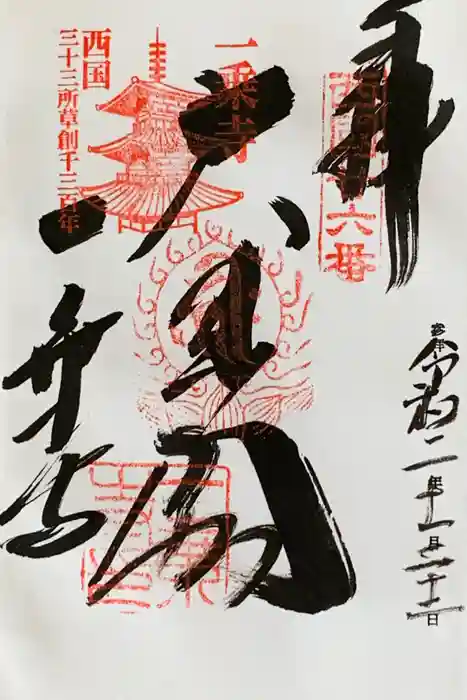 奉拝
六番
令和二年十一月二十二日
一乗寺
大悲閣
西国
三十三所草創千三百年
一乗寺